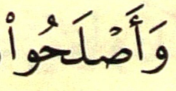 وَأَصۡلَحُواْ